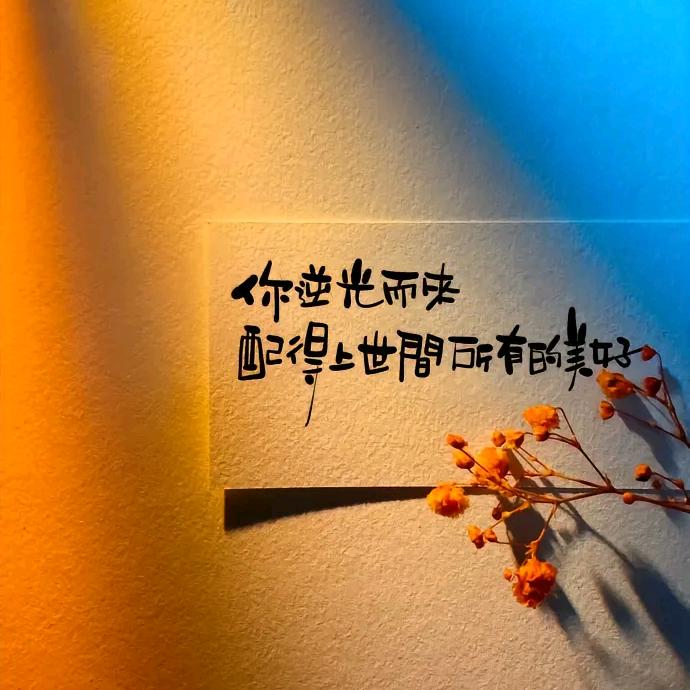 你逆光而来
配得上世間所有的美好